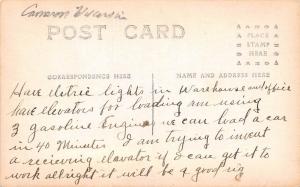 Cameron Wisconsin
POST CARD
PLACE
STAMP
HERE
CORRESPONDENCE HERE
NAME AND ADDRESS HERE
Have eletric lights in Warehouse and office
have elevators for loading am using
3 gasoline Engines we can load a car
in 40 Minutes I am trying to invent
a recieving elavator if I can get it to
work allright it will be a good rig